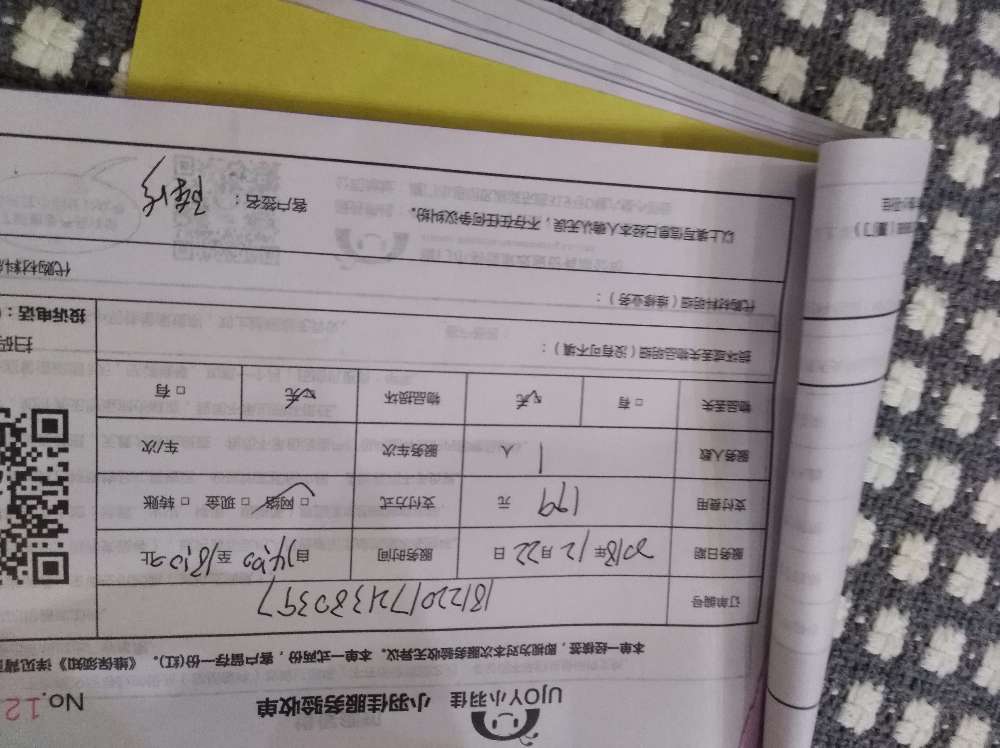 UJOY小羽佳 小羽佳服务验收单 No.12
本单一经核签，即视为对本次服务验收无异议。本单一式两份，客户留存一份(红)。《维保须知》详见背
订单编号 181220172138039７
服务日期 2018年12月22日 服务时间 自14:00至18:10止
支付费用 199元 支付方式 ☑网络 □现金 □转账
服务人数 1人 服务车次 车/次
物品丢失 □有 ☑无 物品损坏 ☑无 □有
损坏或丢失物品明细（没有可不填）：
扫码
投诉电话：
代购材料明细（维修业务）：
代购材料
以上填写信息已经本人确认无误，不存在任何争议纠纷。 客户签名：